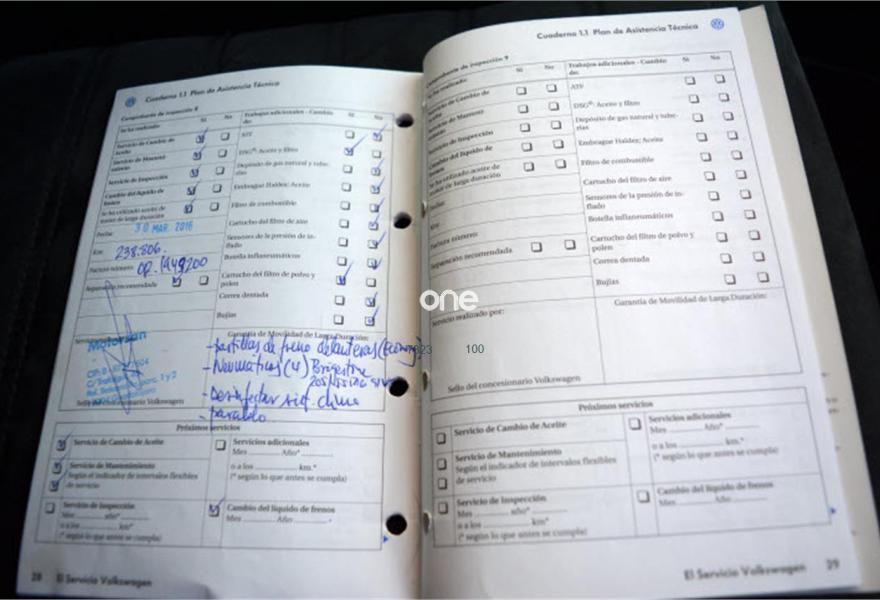 Cuaderno 1.1 Plan de Asistencia Técnica
Comprobante de inspección 8
Se ha realizado:
Sí No
Trabajos adicionales - Cambio de:
Sí No
Servicio de Cambio de Aceite
Servicio de Mantenimiento
Servicio de Inspección
Cambio del líquido de frenos
Se ha utilizado aceite de motor de larga duración
Fecha:
30 MAR. 2016
Km:
238.806.
Factura número:
Reparación recomendada
ATF
DSG®: Aceite y filtro
Depósito de gas natural y tuberías
Embrague Haldex: Aceite
Filtro de combustible
Cartucho del filtro de aire
Sensores de la presión de inflado
Botella inflaneumáticos
Cartucho del filtro de polvo y polen
Correa dentada
Bujías
Garantía de Movilidad de Larga Duración:
- pastillas de freno delanteras
- Neumáticos (4)
- Desinfectar
Motorsan
Sello del concesionario Volkswagen
Próximos servicios
Servicio de Cambio de Aceite
Servicio de Mantenimiento
Según el indicador de intervalos flexibles
de servicio
Servicio de Inspección
Mes ........ año* ........
o a los ........ km*
(* según lo que antes se cumpla)
Servicios adicionales
Mes ........ Año* ........
o a los ........ km.*
(* según lo que antes se cumpla)
Cambio del líquido de frenos
Mes ........ Año ........
28 El Servicio Volkswagen
one
100
Cuaderno 1.1 Plan de Asistencia Técnica
Comprobante de inspección 9
Se ha realizado:
Sí No
Trabajos adicionales - Cambio
de:
Sí No
Servicio de Cambio de
Servicio de Inspección
Cambio del líquido de
Se ha utilizado aceite de
motor de larga duración
Fecha:
Km:
Factura número:
Reparación recomendada
ATF
DSG®: Aceite y filtro
Depósito de gas natural y tuberías
Embrague Haldex: Aceite
Filtro de combustible
Cartucho del filtro de aire
Sensores de la presión de inflado
Botella inflaneumáticos
Cartucho del filtro de polvo y
polen
Correa dentada
Bujías
Servicio realizado por:
Garantía de Movilidad de Larga Duración:
Sello del concesionario Volkswagen
Próximos servicios
Servicio de Cambio de Aceite
Servicio de Mantenimiento
Según el indicador de intervalos flexibles
de servicio
Servicio de Inspección
Mes ........ año* ........
o a los ........ km*
(* según lo que antes se cumpla)
Servicios adicionales
Mes ........ Año* ........
o a los ........ km.*
(* según lo que antes se cumpla)
Cambio del líquido de frenos
Mes ........ Año ........
El Servicio Volkswagen 29